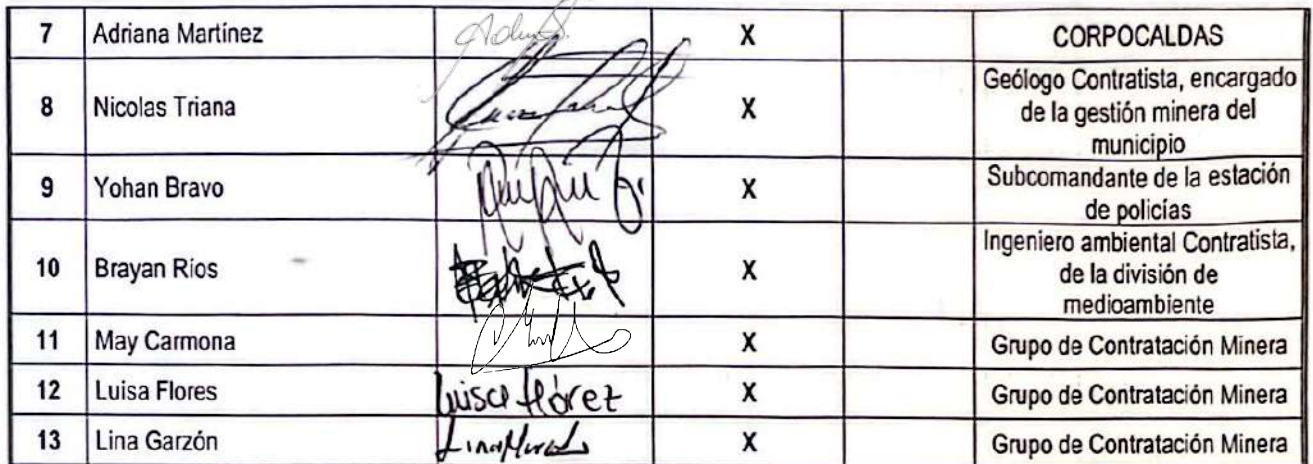 7 Adriana Martínez X CORPOCALDAS
8 Nicolas Triana X Geólogo Contratista, encargado
de la gestión minera del
municipio
9 Yohan Bravo X Subcomandante de la estación
de policías
10 Brayan Ríos X Ingeniero ambiental Contratista,
de la división de
medioambiente
11 May Carmona X Grupo de Contratación Minera
12 Luisa Flores Luisa Flórez X Grupo de Contratación Minera
13 Lina Garzón X Grupo de Contratación Minera